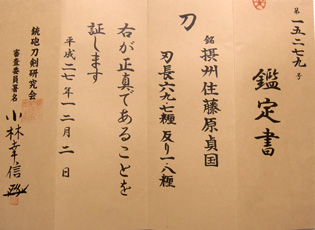 第一五二七九号
鑑定書
刀 銘 摂州住藤原貞国
刃長六九.七糎 反り一.八糎
右が正真であることを
証します
平成二七年一二月二日
銃砲刀剣研究会
審査委員署名 小林幸信